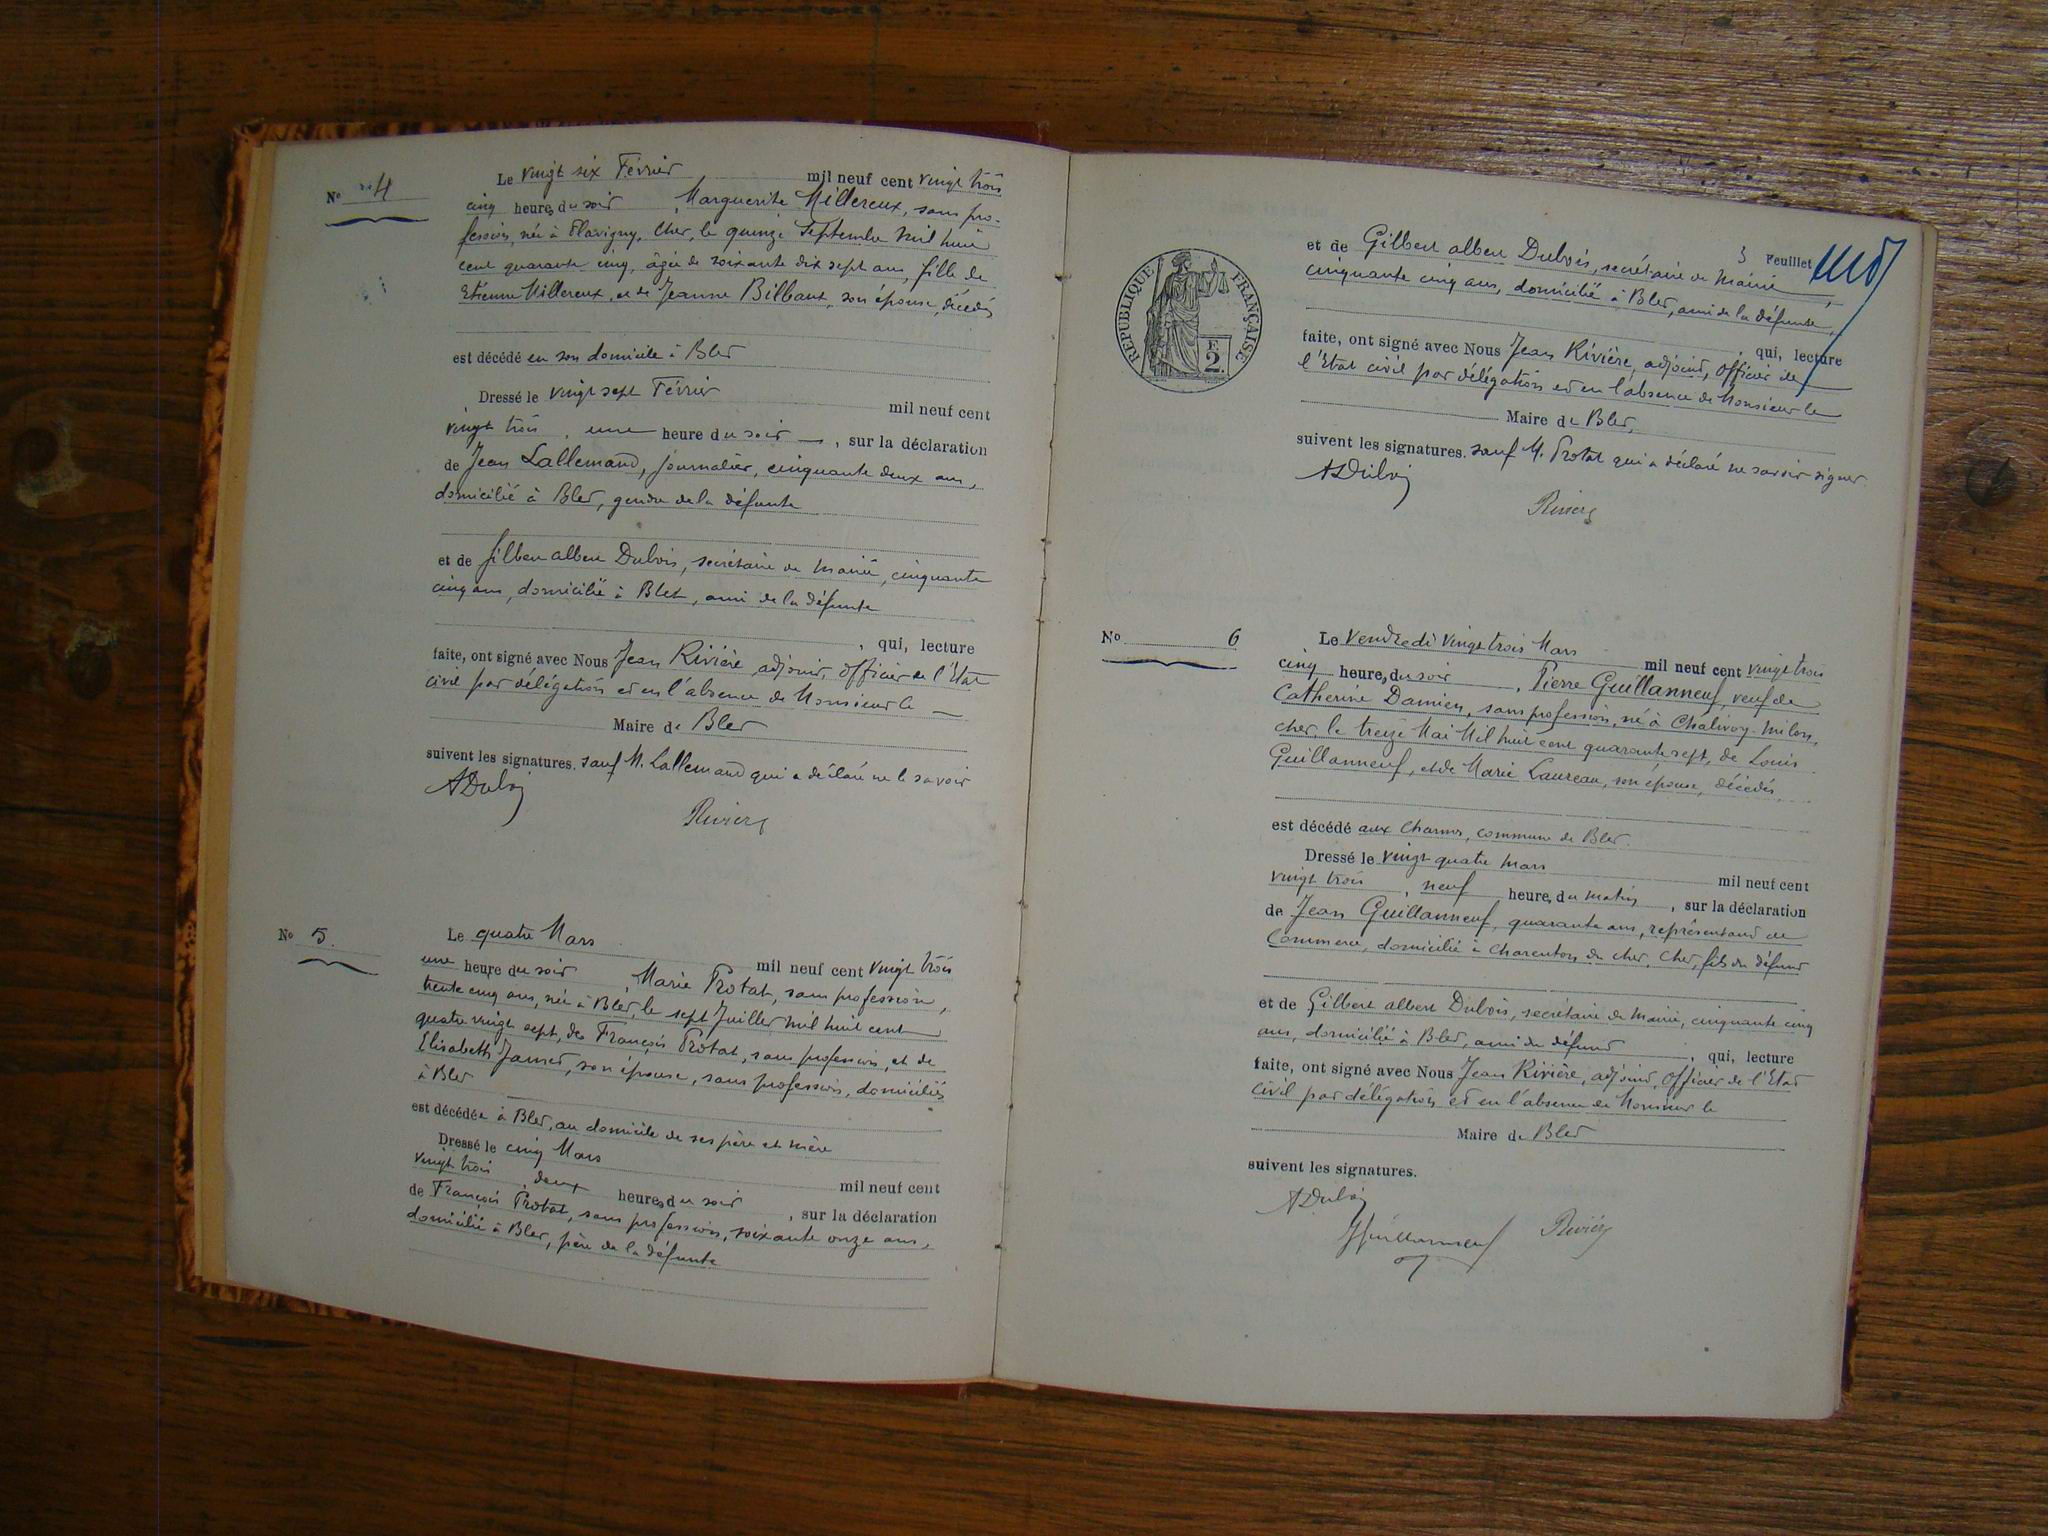 No 4
Le vingt six Février mil neuf cent vingt trois
cinq heures du soir, Marguerite Millereux, sans pro-
fession, née à Flavigny, Cher, le quinze Septembre mil huit
cent quarante cinq, âgée de soixante dix sept ans, fille de
Etienne Millereux, et de Jeanne Bilbaut, son épouse, décédés
est décédé en son domicile à Blet
Dressé le vingt sept Février mil neuf cent
vingt trois, une heure du soir, sur la déclaration
de Jean Lallemand, journalier, cinquante deux ans,
domicilié à Blet, gendre de la défunte
et de Gilbert Albert Dubois, secrétaire de Mairie, cinquante
cinq ans, domicilié à Blet, ami de la défunte
, qui, lecture
faite, ont signé avec Nous Jean Rivière, adjoint, officier de l'Etat
civil par délégation et en l'absence de Monsieur le
Maire de Blet
suivent les signatures. sauf M. Lallemand qui a déclaré ne le savoir
ADubois
Rivière
No 5.
Le quatre Mars mil neuf cent vingt trois
une heure du soir, Marie Protat, sans profession,
trente cinq ans, née à Blet, le sept Juillet mil huit cent
quatre vingt sept, de François Protat, sans profession, et de
Elisabeth Jamet, son épouse, sans profession, domiciliés
à Blet
est décédée à Blet, au domicile de ses père et mère
Dressé le cinq Mars mil neuf cent
vingt trois, deux heures du soir, sur la déclaration
de François Protat, sans profession, soixante onze ans,
domicilié à Blet, père de la défunte
3 Feuillet
RÉPUBLIQUE FRANÇAISE
F. 2.
et de Gilbert Albert Dubois, secrétaire de Mairie,
cinquante cinq ans, domicilié à Blet, ami de la défunte,
qui, lecture
faite, ont signé avec Nous Jean Rivière, adjoint, officier de
l'Etat civil par délégation et en l'absence de Monsieur le
Maire de Blet,
suivent les signatures. sauf M. Protat qui a déclaré ne savoir signer.
ADubois
Rivière
No 6
Le Vendredi vingt trois Mars mil neuf cent vingt trois
cinq heures, du soir, Pierre Guillanneuf, veuf de
Catherine Damien, sans profession, né à Chalivoy-Milon,
Cher, le treize Mai Mil huit cent quarante sept, de Louis
Guillanneuf, et de Marie Laureau, son épouse, décédés.
est décédé aux Charmes, commune de Blet.
Dressé le vingt quatre Mars mil neuf cent
vingt trois, neuf heures, du matin, sur la déclaration
de Jean Guillanneuf, quarante ans, représentant de
Commerce, domicilié à Charenton du Cher, Cher, fils du défunt
et de Gilbert Albert Dubois, secrétaire de Mairie, cinquante cinq
ans, domicilié à Blet, ami du défunt, qui, lecture
faite, ont signé avec Nous Jean Rivière, adjoint, officier de l'Etat
civil par délégation et en l'absence de Monsieur le
Maire de Blet
suivent les signatures.
ADubois
JGuillanneuf
Rivière